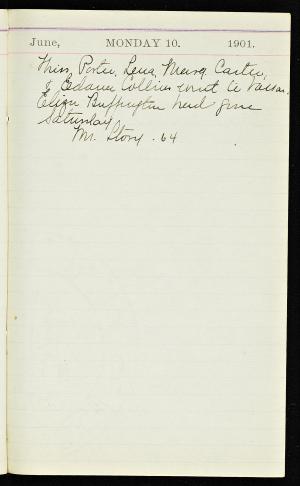 June, MONDAY 10. 1901.
Miss Porter, Lena, Marg. Carter,
& Edana Collins went to Vassar.
Eliza Buffington had gone
Saturday
Mr. Story . 64